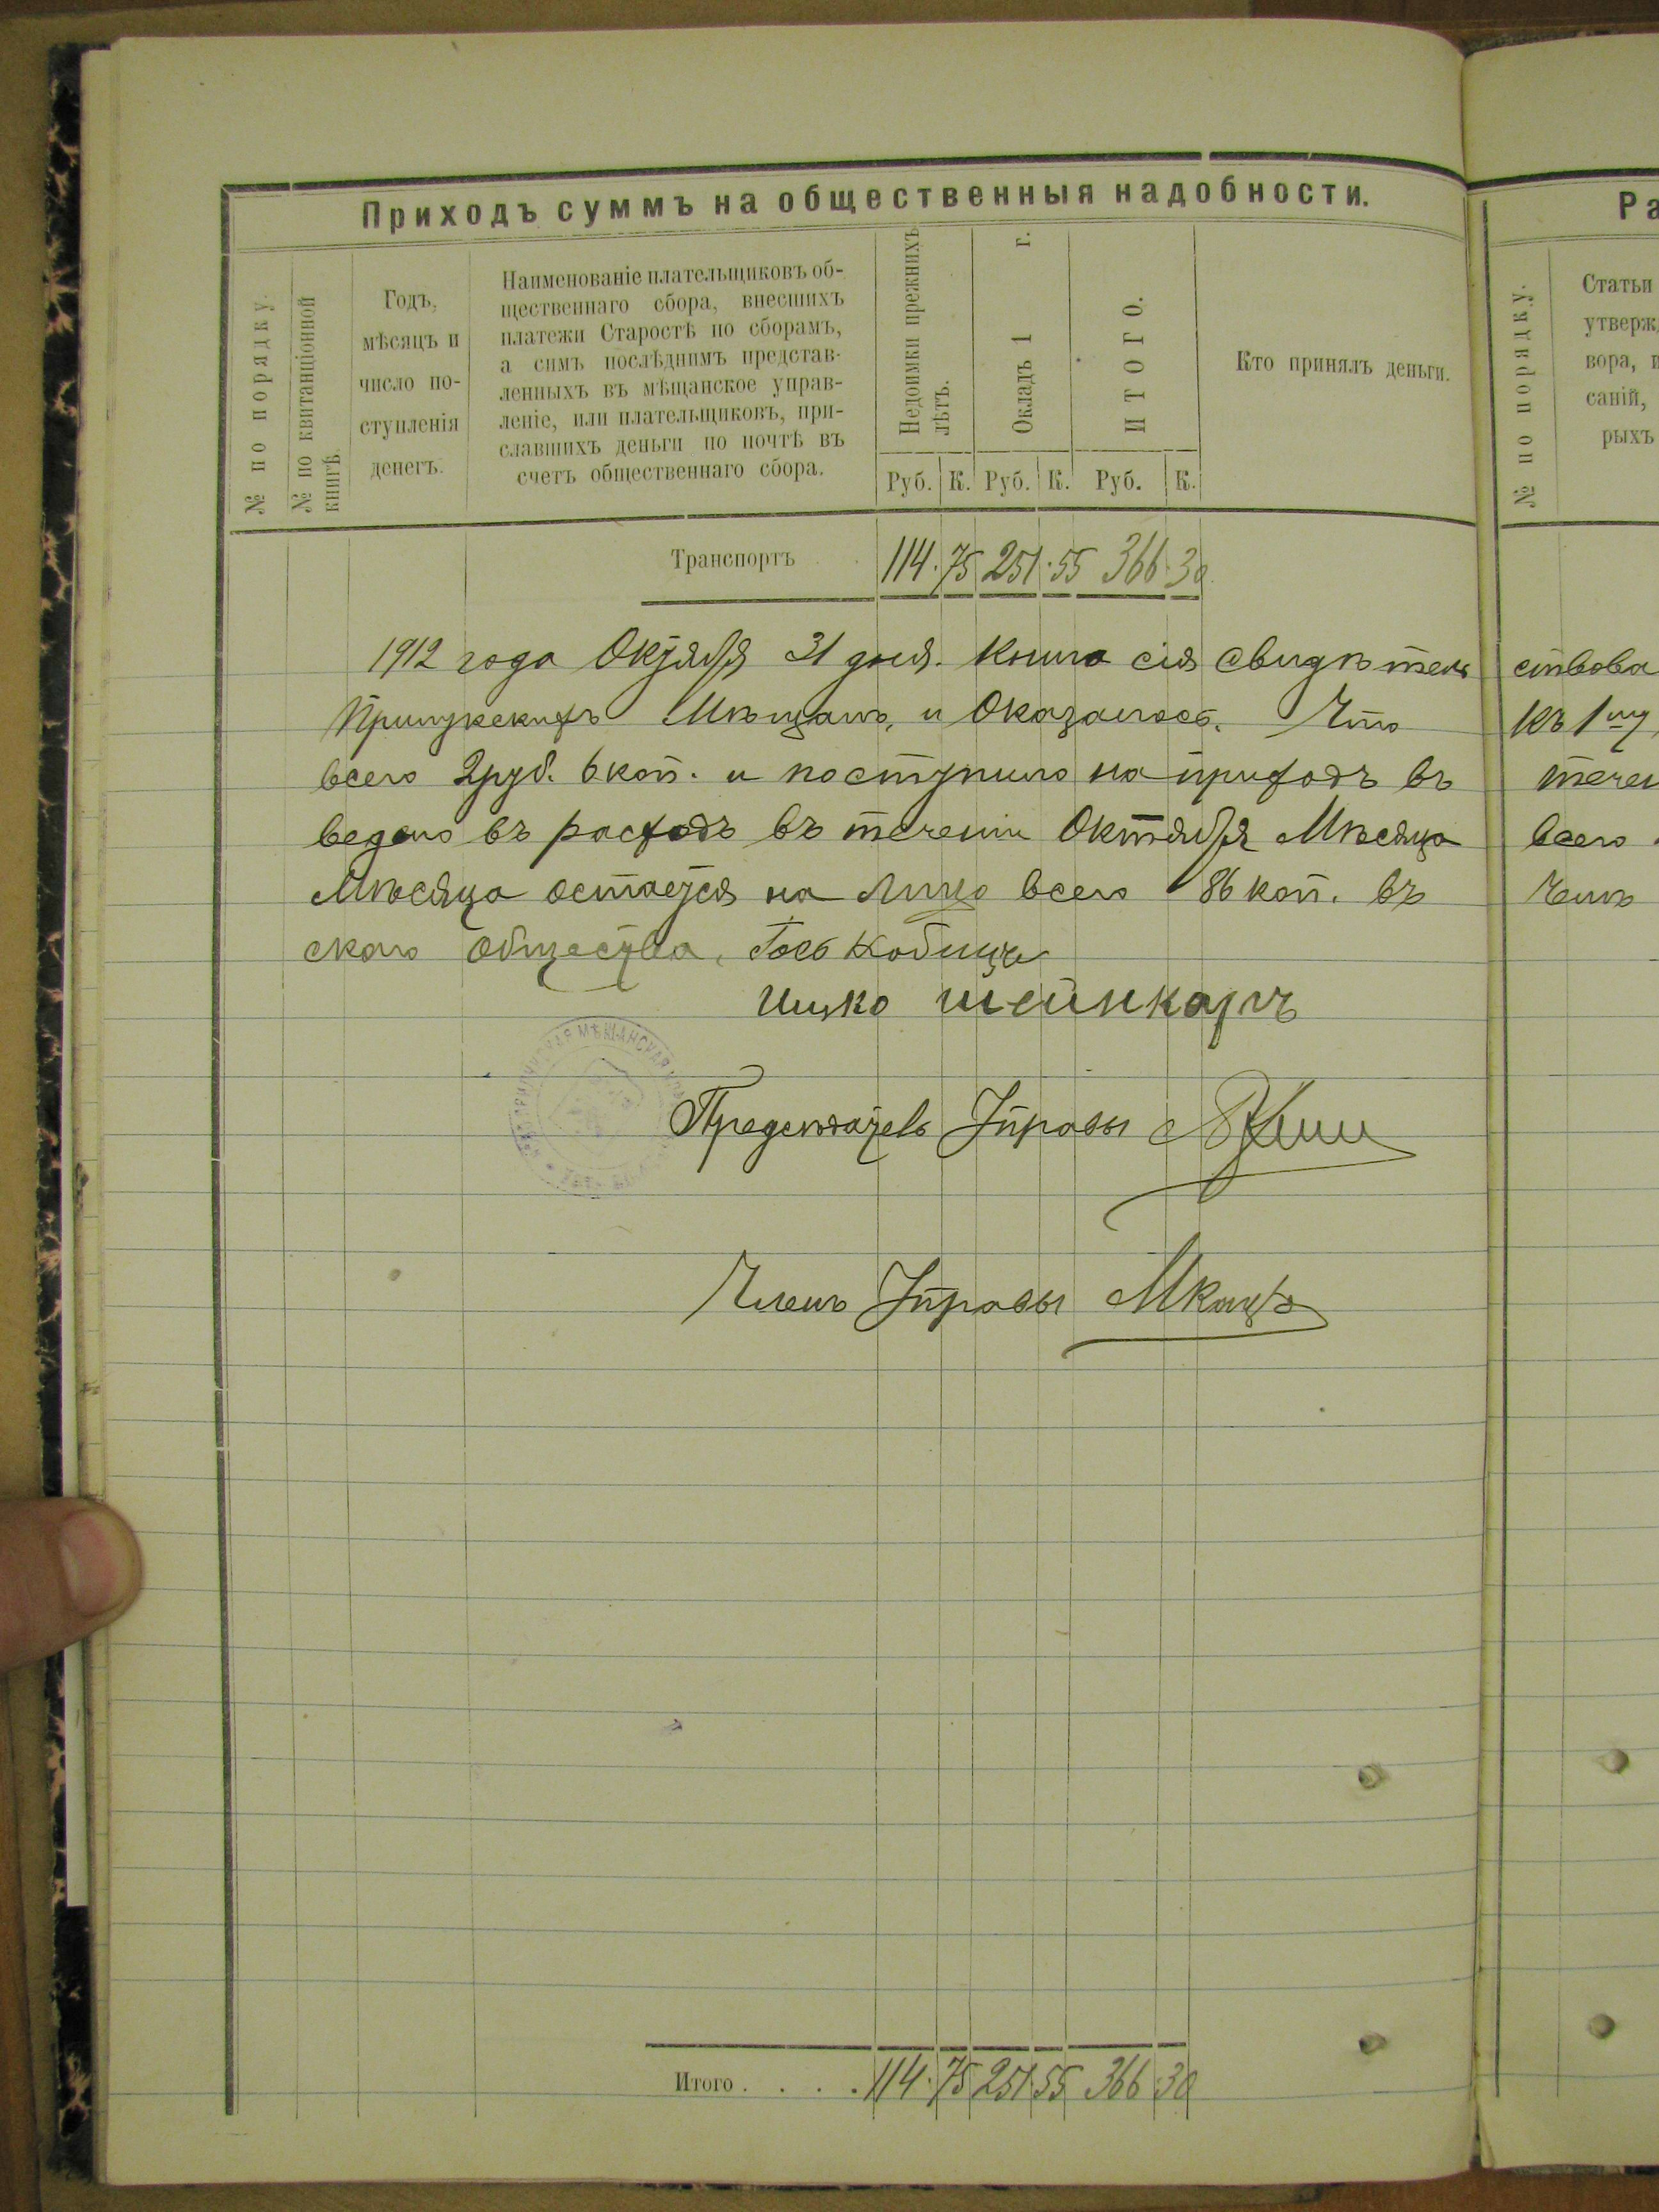 Приходъ суммъ на общественныя надобности.
№ по порядку.
№ по квитанціонной
книгѣ.
Годъ,
мѣсяцъ и
число по-
ступленія
денегъ.
Наименованіе плательщиковъ об-
щественнаго сбора, внесшихъ
платежи Старостѣ по сборамъ,
а симъ послѣднимъ представ-
ленныхъ въ мѣщанское управ-
леніе, или плательщиковъ, при-
славшихъ деньги по почтѣ въ
счетъ общественнаго сбора.
Недоимки прежнихъ
лѣтъ.
Окладъ 1 г.
ИТОГО.
Руб. К. Руб. К. Руб. К.
Кто принялъ деньги.
Транспортъ 114. 75 251. 55 366. 30
1912 года Октября 31 дня. Книга сія свидѣтель
Мѣщанъ, и Оказалось. Что
всего 2 руб. 6 коп. и поступило на приходъ въ
ведено въ расходъ въ теченіи Октября Мѣсяца
Мѣсяца остается на лицо всего 86 коп. въ
скаго общества,
Ицко
Предсѣдатель Управы
Членъ Управы МКацъ
Итого . . . . 114. 75 251. 55 366. 30
Ра
№ по порядку.
Статьи
утверж
вора, п
саній,
рыхъ
ствова
къ 1му
течен
всего
чемъ